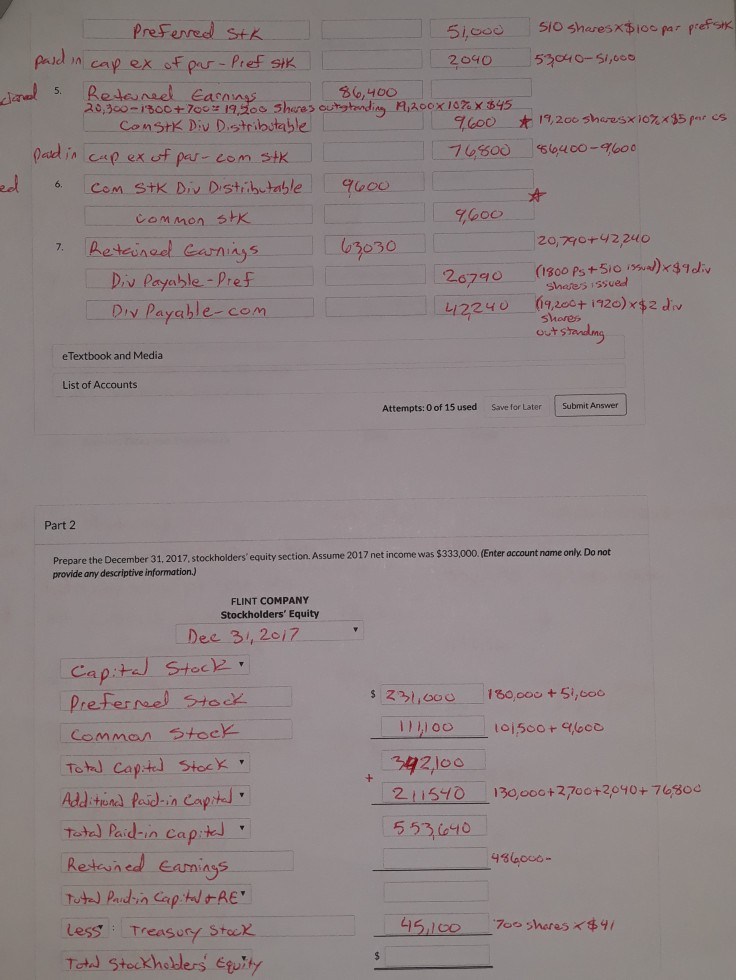 Preferred Stk 51,000 510 shares x $100 par pref stk
Paid in cap ex of par - Pref stk 2040 53,040 - 51,000
5. Retained Earnings 86,400
20,300 - 1800 + 700 = 19,200 shares outstanding 19,200 x 10% x $45
Com Stk Div Distributable 9,600 * 19,200 shares x 10% x $5 par cs
Paid in cap ex of par - com stk 76,800 86,400 - 9,600
6. Com Stk Div Distributable 9600
common stk 9,600
7. Retained Earnings 63030 20,790 + 42240
Div Payable - Pref 20790 (1800 Ps + 510 issued) x $9 div
shares issued
Div Payable - com 42240 (19,200 + 1920) x $2 div
shares
outstanding
eTextbook and Media
List of Accounts
Attempts: 0 of 15 used Save for Later Submit Answer
Part 2
Prepare the December 31, 2017, stockholders' equity section. Assume 2017 net income was $333,000. (Enter account name only. Do not
provide any descriptive information.)
FLINT COMPANY
Stockholders' Equity
Dec 31, 2017
Capital Stock
Preferred Stock $ 231,000 180,000 + 51,000
Common Stock 111,100 101,500 + 9,600
Total Capital Stock 342,100
+
Additional Paid-in Capital 211540 130,000 + 2,700 + 2,040 + 76,800
Total Paid-in capital 553,640
Retained Earnings 486,000 -
Total Paid-in Capital + RE
Less : Treasury Stock 45,100 700 shares x $41
Total Stockholders' Equity $